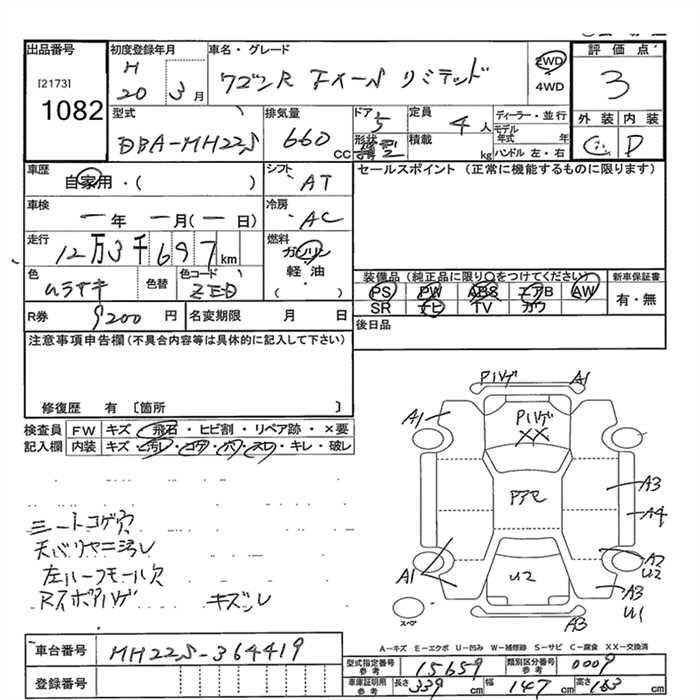 出品番号
[2173]
1082
初度登録年月
H
20 3月
車名・グレード
ワゴンR FX-S リミテッド
2WD
4WD
評価点
3
外装 内装
C D
型式
DBA-MH22S
排気量
660 CC
ドア 5
形状
定員 4人
積載 kg
ディーラー・並行
モデル年式 年
ハンドル 左・右
車歴
自家用・( )
シフト
AT
車検
一年 一月(一日)
冷房
AC
走行
12万3千697km
燃料
ガソリン
軽油
( )
色
ムラサキ
色替
色コード
ZED
R券 9200円
名変期限 月 日
セールスポイント(正常に機能するものに限ります)
装備品(純正品に限り○をつけてください)
PS PW ABS エアB AW
SR ナビ TV カワ
新車保証書
有・無
後日品
注意事項申告欄(不具合内容等は具体的に記入して下さい)
修復歴 有〔箇所 〕
検査員 FW キズ・飛石・ヒビ割・リペア跡・×要
記入欄 内装 キズ・汚レ・コゲ・穴・スレ・キレ・破レ
シートコゲ穴
天バリヤニ汚レ
左ルーフモール欠
Rエンボハゲ キズスレ
Pハゲ A1
A1
Pハゲ
XX
A3
A4
A1
U2
A2
U2
A3
U1
A3
スペア
A-キズ E-エクボ U-凹み W-補修跡 S-サビ C-腐食 XX-交換済
車台番号 MH22S-364419
登録番号
型式指定番号 参考 15659
類別区分番号 参考 0009
車庫証明用 参考 長さ 339cm 幅 147cm 高さ 163cm